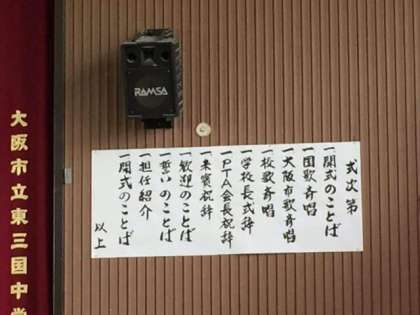 RAMSA
大阪市立東三国中学
式次第
一開式のことば
一国歌斉唱
一大阪市歌斉唱
一校歌斉唱
一学校長式辞
一PTA会長祝辞
一来賓祝辞
一歓迎のことば
一誓いのことば
一担任紹介
一閉式のことば
以上